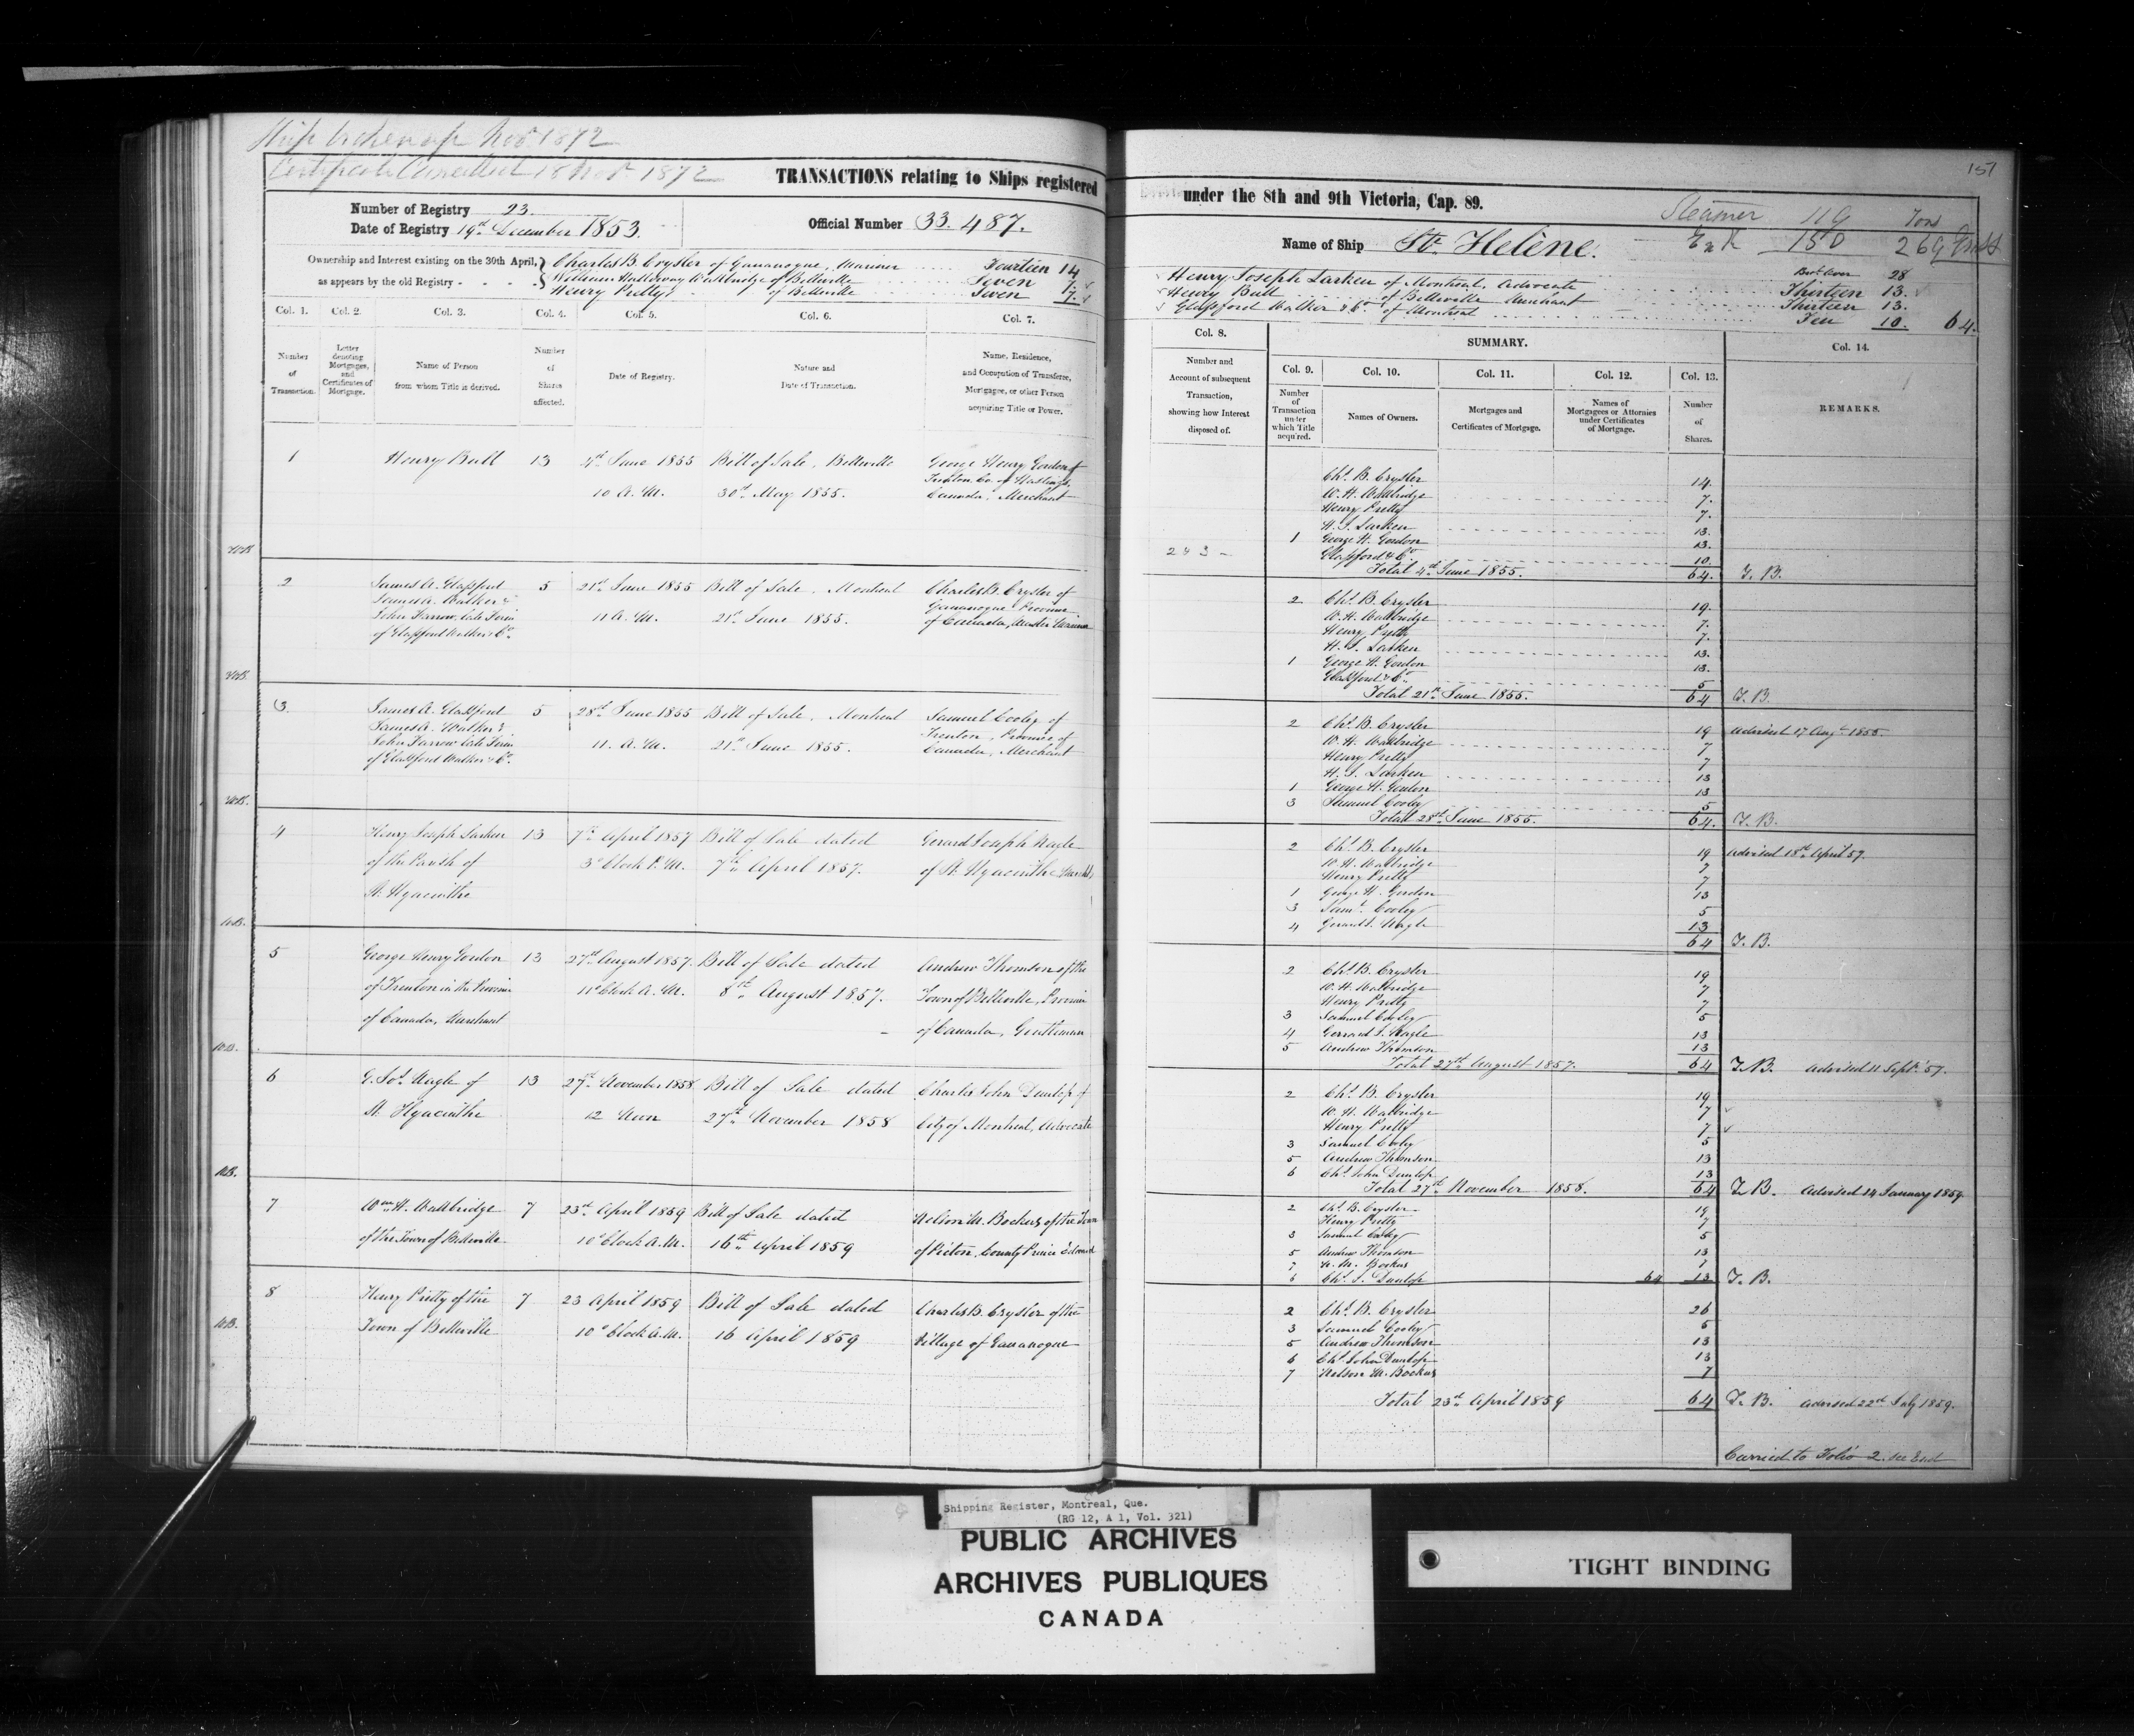 Ship broken up Nov 1872
Certificate Cancelled 18 Nov 1872
TRANSACTIONS relating to Ships registered
Number of Registry 23.
Date of Registry 19th December 1853.
Official Number 33.487.
Ownership and Interest existing on the 30th April,
as appears by the old Registry - - - -
Charles B. Crysler of Gananoque, Mariner Fourteen 14
William Wallbridge of Belleville Seven 7.
Henry Pretty of Belleville Seven 7.
Col. 1. Col. 2. Col. 3. Col. 4. Col. 5. Col. 6. Col. 7.
Number of Transaction.
Letter denoting Mortgages, and Certificates of Mortgage.
Name of Person from whom Title is derived.
Number of Shares affected.
Date of Registry.
Nature and Date of Transaction.
Name, Residence, and Occupation of Transferee, Mortgagee, or other Person acquiring Title or Power.
1 Henry Bull 13 4th June 1855 Bill of Sale, Belleville George Henry Gordon of
10 A.M. 30th May 1855. Trenton Co. of Hastings,
Canada, Merchant
2 James A. Glassford 5 21st June 1855 Bill of Sale, Montreal Charles B. Crysler of
James A. Walker & Gananoque Province
John Farrow, late Firm 11 A.M. 21st June 1855. of Canada, Master Mariner
of Glassford Walker & Co.
3. James A. Glassford 5 28th June 1855 Bill of Sale, Montreal Samuel Cooley of
James A. Walker & Trenton, Province of
John Farrow late Firm 11. A.M. 21st June 1855. Canada, Merchant
of Glassford Walker & Co.
4 Henry Joseph Larken 13 7th April 1857 Bill of Sale dated Gerard Joseph Nagle
of the Parish of 3 o'Clock P.M. 7th April 1857. of St. Hyacinthe
St. Hyacinthe
5 George Henry Gordon 13 27th August 1857. Bill of Sale dated Andrew Thomson of the
of Trenton in the Province 11 o'Clock A.M. 8th August 1857. Town of Belleville, Province
of Canada, Merchant of Canada, Gentleman
6 G. Jos. Nagle of 13 27th November 1858 Bill of Sale dated Charles John Dunlop of
St. Hyacinthe 12 Noon 27th November 1858 City of Montreal, Advocate
7 Wm. H. Wallbridge 7 23rd April 1859 Bill of Sale dated Nelson M. Bockus of the Town
of the Town of Belleville 10 o'Clock A.M. 16th April 1859 of Picton, County Prince Edward
8 Henry Pretty of the 7 23 April 1859 Bill of Sale dated Charles B. Crysler of the
Town of Belleville 10 o'Clock A.M. 16 April 1859 Village of Gananoque
151
under the 8th and 9th Victoria, Cap. 89.
Steamer 119 Tons
Name of Ship St. Helène. 150 269 Gross
Brot. over 28
Henry Joseph Larken of Montreal, Advocate Thirteen 13.
Henry Bull of Belleville Merchant Thirteen 13.
Glassford Walker & Co. of Montreal Ten 10. 64.
Col. 8. SUMMARY. Col. 14.
Number and Account of subsequent Transaction, showing how Interest disposed of.
Col. 9. Col. 10. Col. 11. Col. 12. Col. 13.
Number of Transaction under which Title acquired.
Names of Owners.
Mortgages and Certificates of Mortgage.
Names of Mortgagees or Attornies under Certificates of Mortgage.
Number of Shares.
REMARKS.
Chs. B. Crysler 14.
W. H. Wallbridge 7.
Henry Pretty 7.
H. J. Larken 13.
1 George H. Gordon 13.
2 & 3 Glassford & Co. 10.
Total 4th June 1855. 64. T. B.
2 Chs. B. Crysler 19.
W. H. Wallbridge 7.
Henry Pretty 7.
H. J. Larken 13.
1 George H. Gordon 13.
Glassford & Co. 5
Total 21st June 1855. 64 T. B.
2 Chs. B. Crysler 19 Advised 17 Augt 1855.
W. H. Wallbridge 7
Henry Pretty 7
H. J. Larken 13
1 George H. Gordon 13
3 Samuel Cooley 5
Total 28th June 1855. 64. T. B.
2 Chs. B. Crysler 19 Advised 18th April 57.
W. H. Wallbridge 7
Henry Pretty 7
1 George H. Gordon 13
3 Saml. Cooley 5
4 Gerard J. Nagle 13
64 T. B.
2 Chs. B. Crysler 19
W. H. Wallbridge 7
Henry Pretty 7
3 Samuel Cooley 5
4 Gerrard J. Nagle 13
5 Andrew Thomson 13
Total 27th August 1857. 64 T. B. Advised 11 Sept. 57.
2 Chs. B. Crysler 19
W. H. Wallbridge 7
Henry Pretty 7
3 Samuel Cooley 5
5 Andrew Thomson 13
6 Chs. John Dunlop 13
Total 27th November 1858. 64 T. B. Advised 14 January 1859
2 Chs. B. Crysler 19
Henry Pretty 7
3 Samuel Cooley 5
5 Andrew Thomson 13
7 N. M. Bockus 7
6 Chs. J. Dunlop 64 13 T. B.
2 Chs. B. Crysler 26
3 Samuel Cooley 5
5 Andrew Thomson 13
6 Chs. John Dunlop 13
7 Nelson M. Bockus 7
Total 23rd April 1859 64 T. B. Advised 22nd July 1859.
Carried to Folio 2. see End
Shipping Register, Montreal, Que.
(RG 12, A 1, Vol. 321)
PUBLIC ARCHIVES
ARCHIVES PUBLIQUES
CANADA
TIGHT BINDING